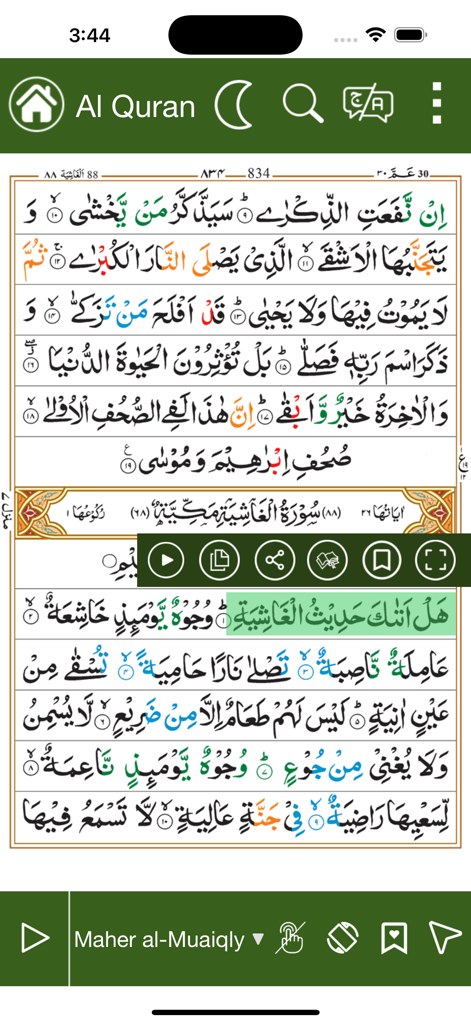 3:44
Al Quran
ج A
٨٨ الغاشية 88
٨٣٤ 834
عم ٣٠ 30
اِنْ نَّفَعَتِ الذِّكْرٰى ۙ۹ سَيَذَّكَّرُ مَنْ يَّخْشٰى ۙ۱۰ وَ
يَتَجَنَّبُهَا الْاَشْقَى ۙ۱۱ الَّذِيْ يَصْلَى النَّارَ الْكُبْرٰى ۚ۱۲ ثُمَّ
لَا يَمُوْتُ فِيْهَا وَلَا يَحْيٰى ؕ۱۳ قَدْ اَفْلَحَ مَنْ تَزَكّٰى ۙ۱۴ وَ
ذَكَرَ اسْمَ رَبِّهٖ فَصَلّٰى ؕ۱۵ بَلْ تُؤْثِرُوْنَ الْحَيٰوةَ الدُّنْيَا ۱۶
وَالْاٰخِرَةُ خَيْرٌ وَّاَبْقٰى ؕ۱۷ اِنَّ هٰذَا لَفِي الصُّحُفِ الْاُوْلٰى ۙ۱۸
صُحُفِ اِبْرٰهِيْمَ وَمُوْسٰى ۱۹
ع
منزل ٧
اٰيَاتُهَا ٢٦ (٨٨) سُوْرَةُ الْغَاشِيَةِ مَكِّيَّةٌ (٦٨) رُكُوْعُهَا ١
هَلْ اَتٰىكَ حَدِيْثُ الْغَاشِيَةِ ؕ۱ وُجُوْهٌ يَّوْمَئِذٍ خَاشِعَةٌ ۙ۲
عَامِلَةٌ نَّاصِبَةٌ ۙ۳ تَصْلٰى نَارًا حَامِيَةً ۙ۴ تُسْقٰى مِنْ
عَيْنٍ اٰنِيَةٍ ؕ۵ لَيْسَ لَهُمْ طَعَامٌ اِلَّا مِنْ ضَرِيْعٍ ۙ۶ لَّا يُسْمِنُ
وَلَا يُغْنِيْ مِنْ جُوْعٍ ؕ۷ وُجُوْهٌ يَّوْمَئِذٍ نَّاعِمَةٌ ۙ۸
لِّسَعْيِهَا رَاضِيَةٌ ۙ۹ فِيْ جَنَّةٍ عَالِيَةٍ ۙ۱۰ لَّا تَسْمَعُ فِيْهَا
Maher al-Muaiqly